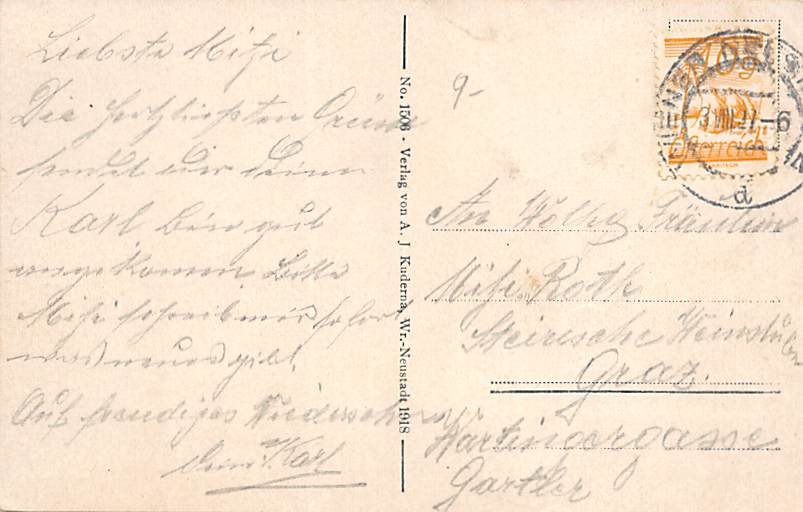 Liebste Mitzi
Die herzlichsten Grüsse
sendet dir dein
Karl bin gut
angekomen. Bitte
Mitzi schreib mir sofort
was neues gibt.
Auf freudiges Wiedersehen
Dein Karl
No. 1506 - Verlag von A. J Kuderna, Wr.-Neustadt 1918
9-
10g
Österreich
WIENER
3 VIII 27-6
d
An Wohlg Fräulein
Mitzi Roth
Steirische Weinstube
Graz.
Wartingergasse
Gartler